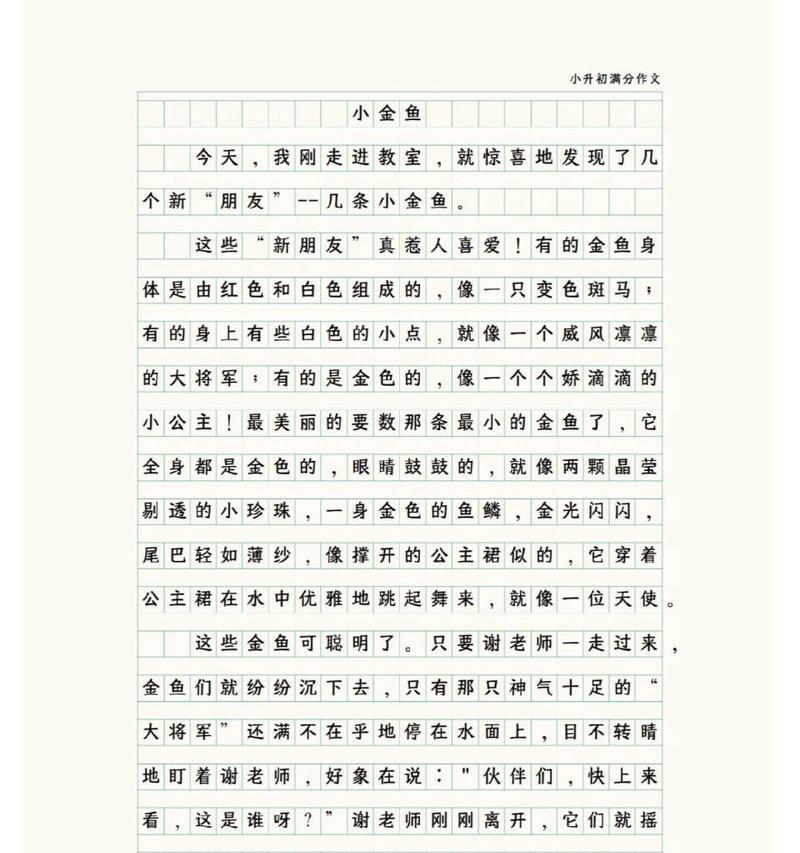 小升初满分作文
小金鱼
今天，我刚走进教室，就惊喜地发现了几
个新“朋友”--几条小金鱼。
这些“新朋友”真惹人喜爱！有的金鱼身
体是由红色和白色组成的，像一只变色斑马；
有的身上有些白色的小点，就像一个威风凛凛
的大将军；有的是金色的，像一个个娇滴滴的
小公主！最美丽的要数那条最小的金鱼了，它
全身都是金色的，眼睛鼓鼓的，就像两颗晶莹
剔透的小珍珠，一身金色的鱼鳞，金光闪闪，
尾巴轻如薄纱，像撑开的公主裙似的，它穿着
公主裙在水中优雅地跳起舞来，就像一位天使。
这些金鱼可聪明了。只要谢老师一走过来，
金鱼们就纷纷沉下去，只有那只神气十足的“
大将军”还满不在乎地停在水面上，目不转睛
地盯着谢老师，好象在说："伙伴们，快上来
看，这是谁呀？”谢老师刚刚离开，它们就摇